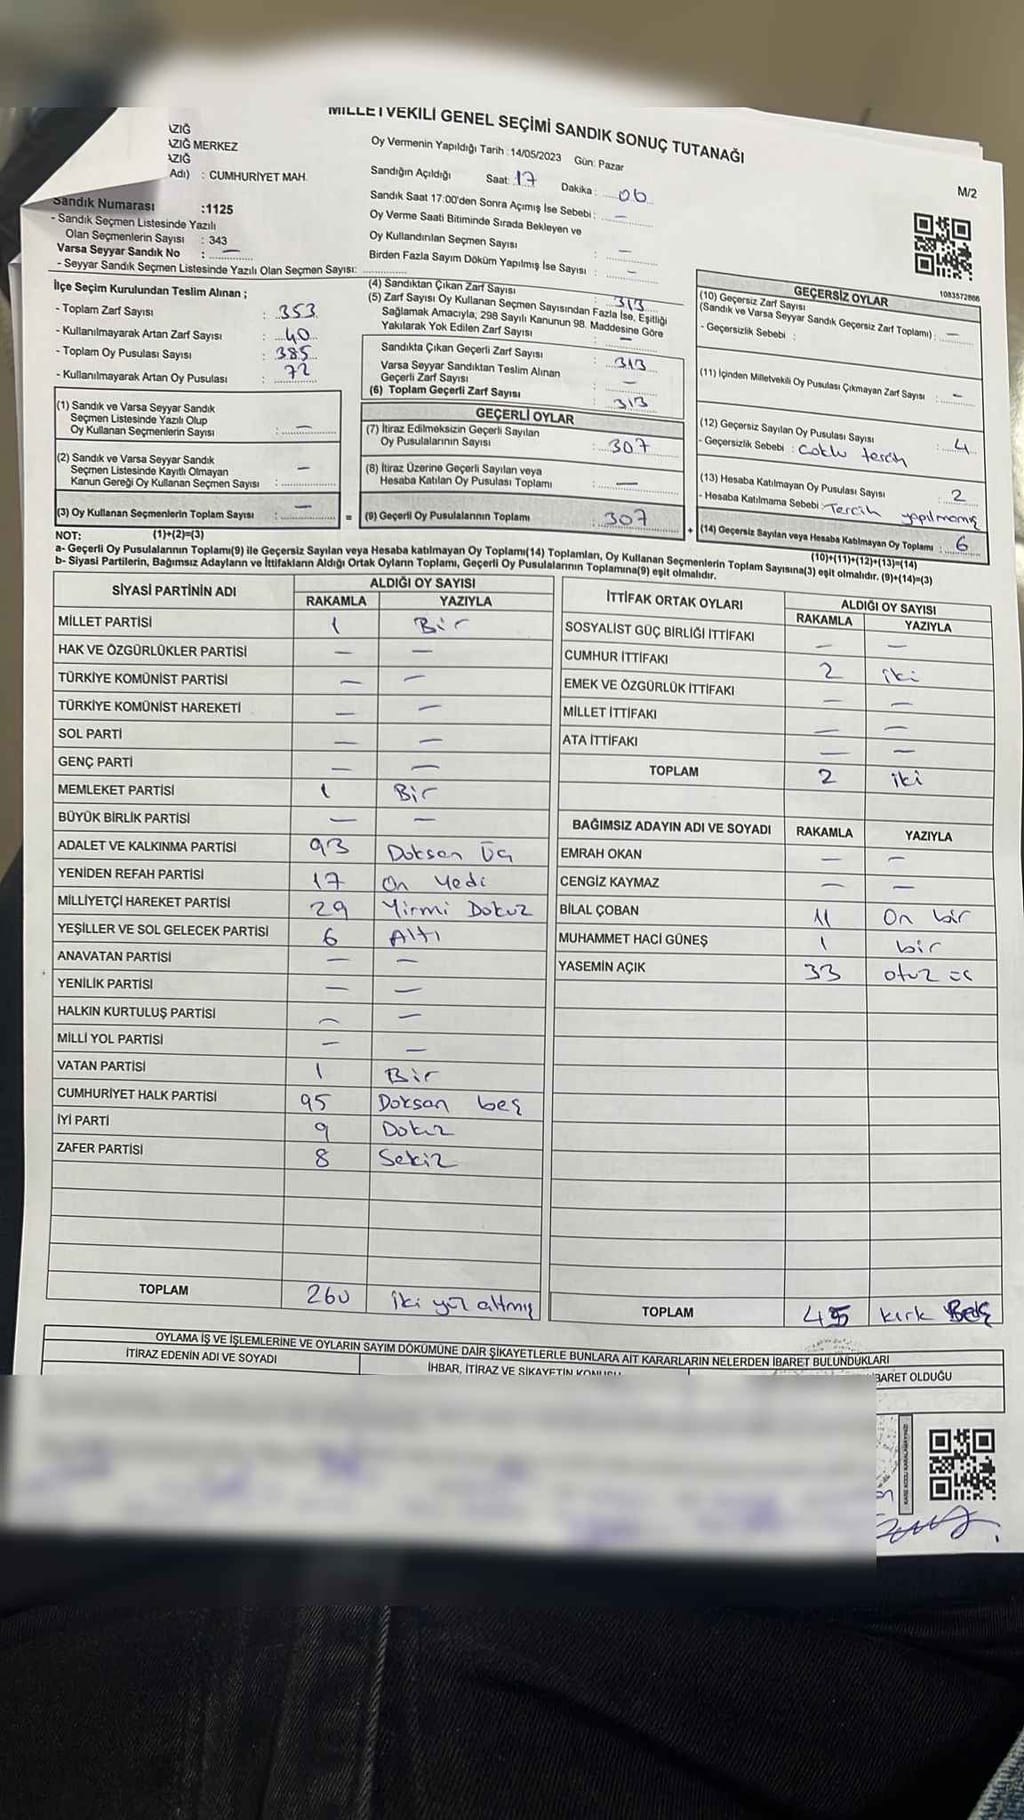 MİLLETVEKİLİ GENEL SEÇİMİ SANDIK SONUÇ TUTANAĞI
AZIĞ
AZIĞ MERKEZ
AZIĞ
Adı) : CUMHURİYET MAH.
Oy Vermenin Yapıldığı Tarih :14/05/2023 Gün: Pazar
M/2
Sandığın Açıldığı Saat: 17 Dakika : 06
Sandık Saat 17:00'den Sonra Açımış İse Sebebi : —
Oy Verme Saati Bitiminde Sırada Bekleyen ve
Oy Kullandırılan Seçmen Sayısı : —
Birden Fazla Sayım Döküm Yapılmış İse Sayısı : —
Sandık Numarası :1125
- Sandık Seçmen Listesinde Yazılı
Olan Seçmenlerin Sayısı : 343
Varsa Seyyar Sandık No : —
- Seyyar Sandık Seçmen Listesinde Yazılı Olan Seçmen Sayısı:
1083572866
İlçe Seçim Kurulundan Teslim Alınan ;
- Toplam Zarf Sayısı : 353
- Kullanılmayarak Artan Zarf Sayısı : 40
- Toplam Oy Pusulası Sayısı : 385
- Kullanılmayarak Artan Oy Pusulası : 72
(1) Sandık ve Varsa Seyyar Sandık
Seçmen Listesinde Yazılı Olup
Oy Kullanan Seçmenlerin Sayısı : —
(2) Sandık ve Varsa Seyyar Sandık
Seçmen Listesinde Kayıtlı Olmayan
Kanun Gereği Oy Kullanan Seçmen Sayısı : —
(3) Oy Kullanan Seçmenlerin Toplam Sayısı : —
(4) Sandıktan Çıkan Zarf Sayısı : 313
(5) Zarf Sayısı Oy Kullanan Seçmen Sayısından Fazla İse, Eşitliği
Sağlamak Amacıyla, 298 Sayılı Kanunun 98. Maddesine Göre
Yakılarak Yok Edilen Zarf Sayısı : —
Sandıkta Çıkan Geçerli Zarf Sayısı : 313
Varsa Seyyar Sandıktan Teslim Alınan
Geçerli Zarf Sayısı : —
(6) Toplam Geçerli Zarf Sayısı : 313
GEÇERLİ OYLAR
(7) İtiraz Edilmeksizin Geçerli Sayılan
Oy Pusulalarının Sayısı : 307
(8) İtiraz Üzerine Geçerli Sayılan veya
Hesaba Katılan Oy Pusulası Toplamı : —
= (9) Geçerli Oy Pusulalarının Toplamı : 307
GEÇERSİZ OYLAR
(10) Geçersiz Zarf Sayısı
(Sandık ve Varsa Seyyar Sandık Geçersiz Zarf Toplamı) : —
- Geçersizlik Sebebi :
(11) İçinden Milletvekili Oy Pusulası Çıkmayan Zarf Sayısı : —
(12) Geçersiz Sayılan Oy Pusulası Sayısı : 4
- Geçersizlik Sebebi : Çoklu tercih
(13) Hesaba Katılmayan Oy Pusulası Sayısı : 2
- Hesaba Katılmama Sebebi : Tercih yapılmamış
+ (14) Geçersiz Sayılan veya Hesaba Katılmayan Oy Toplamı : 6
NOT: (1)+(2)=(3)
(10)+(11)+(12)+(13)=(14)
a- Geçerli Oy Pusulalarının Toplam(9) ile Geçersiz Sayılan veya Hesaba katılmayan Oy Toplamı(14) Toplamları, Oy Kullanan Seçmenlerin Toplam Sayısına(3) eşit olmalıdır. (9)+(14)=(3)
b- Siyasi Partilerin, Bağımsız Adayların ve İttifakların Aldığı Ortak Oyların Toplamı, Geçerli Oy Pusulalarının Toplamına(9) eşit olmalıdır.
SİYASİ PARTİNİN ADI ALDIĞI OY SAYISI
RAKAMLA YAZIYLA
MİLLET PARTİSİ 1 Bir
HAK VE ÖZGÜRLÜKLER PARTİSİ — —
TÜRKİYE KOMÜNİST PARTİSİ — —
TÜRKİYE KOMÜNİST HAREKETİ — —
SOL PARTİ — —
GENÇ PARTİ — —
MEMLEKET PARTİSİ 1 Bir
BÜYÜK BİRLİK PARTİSİ — —
ADALET VE KALKINMA PARTİSİ 93 Doksan Üç
YENİDEN REFAH PARTİSİ 17 On Yedi
MİLLİYETÇİ HAREKET PARTİSİ 29 Yirmi Dokuz
YEŞİLLER VE SOL GELECEK PARTİSİ 6 Altı
ANAVATAN PARTİSİ — —
YENİLİK PARTİSİ — —
HALKIN KURTULUŞ PARTİSİ — —
MİLLİ YOL PARTİSİ — —
VATAN PARTİSİ 1 Bir
CUMHURİYET HALK PARTİSİ 95 Doksan beş
İYİ PARTİ 9 Dokuz
ZAFER PARTİSİ 8 Sekiz
TOPLAM 260 iki yüz altmış
İTTİFAK ORTAK OYLARI ALDIĞI OY SAYISI
RAKAMLA YAZIYLA
SOSYALİST GÜÇ BİRLİĞİ İTTİFAKI — —
CUMHUR İTTİFAKI 2 iki
EMEK VE ÖZGÜRLÜK İTTİFAKI — —
MİLLET İTTİFAKI — —
ATA İTTİFAKI — —
TOPLAM 2 iki
BAĞIMSIZ ADAYIN ADI VE SOYADI RAKAMLA YAZIYLA
EMRAH OKAN — —
CENGİZ KAYMAZ — —
BİLAL ÇOBAN 11 On bir
MUHAMMET HACİ GÜNEŞ 1 bir
YASEMİN AÇIK 33 otuz üç
TOPLAM 45 kırk Beş
OYLAMA İŞ VE İŞLEMLERİNE VE OYLARIN SAYIM DÖKÜMÜNE DAİR ŞİKAYETLERLE BUNLARA AİT KARARLARIN NELERDEN İBARET BULUNDUKLARI
İTİRAZ EDENİN ADI VE SOYADI İHBAR, İTİRAZ VE ŞİKAYETİN KONUSU BARET OLDUĞU
KARE KODU KARALAMAYINIZ!